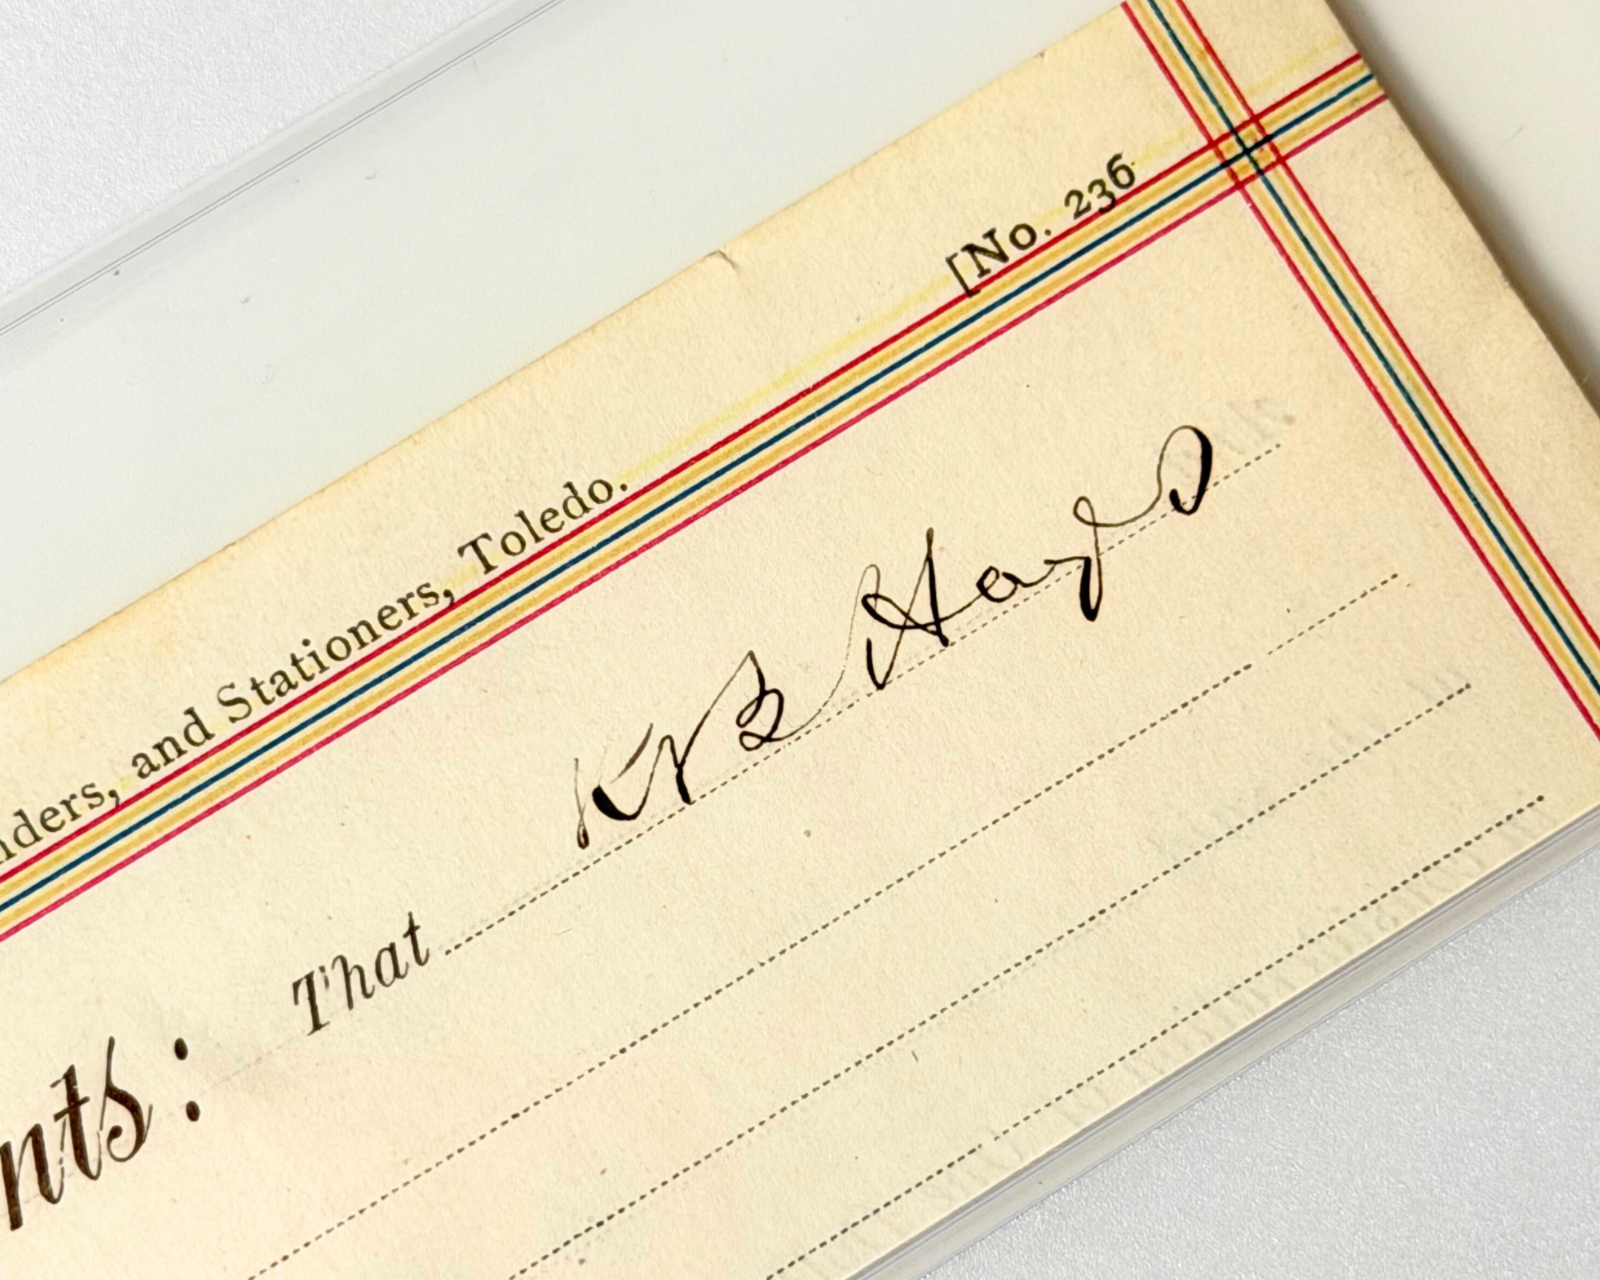 nders, and Stationers, Toledo. [No. 236
R B Hayes
nts: That